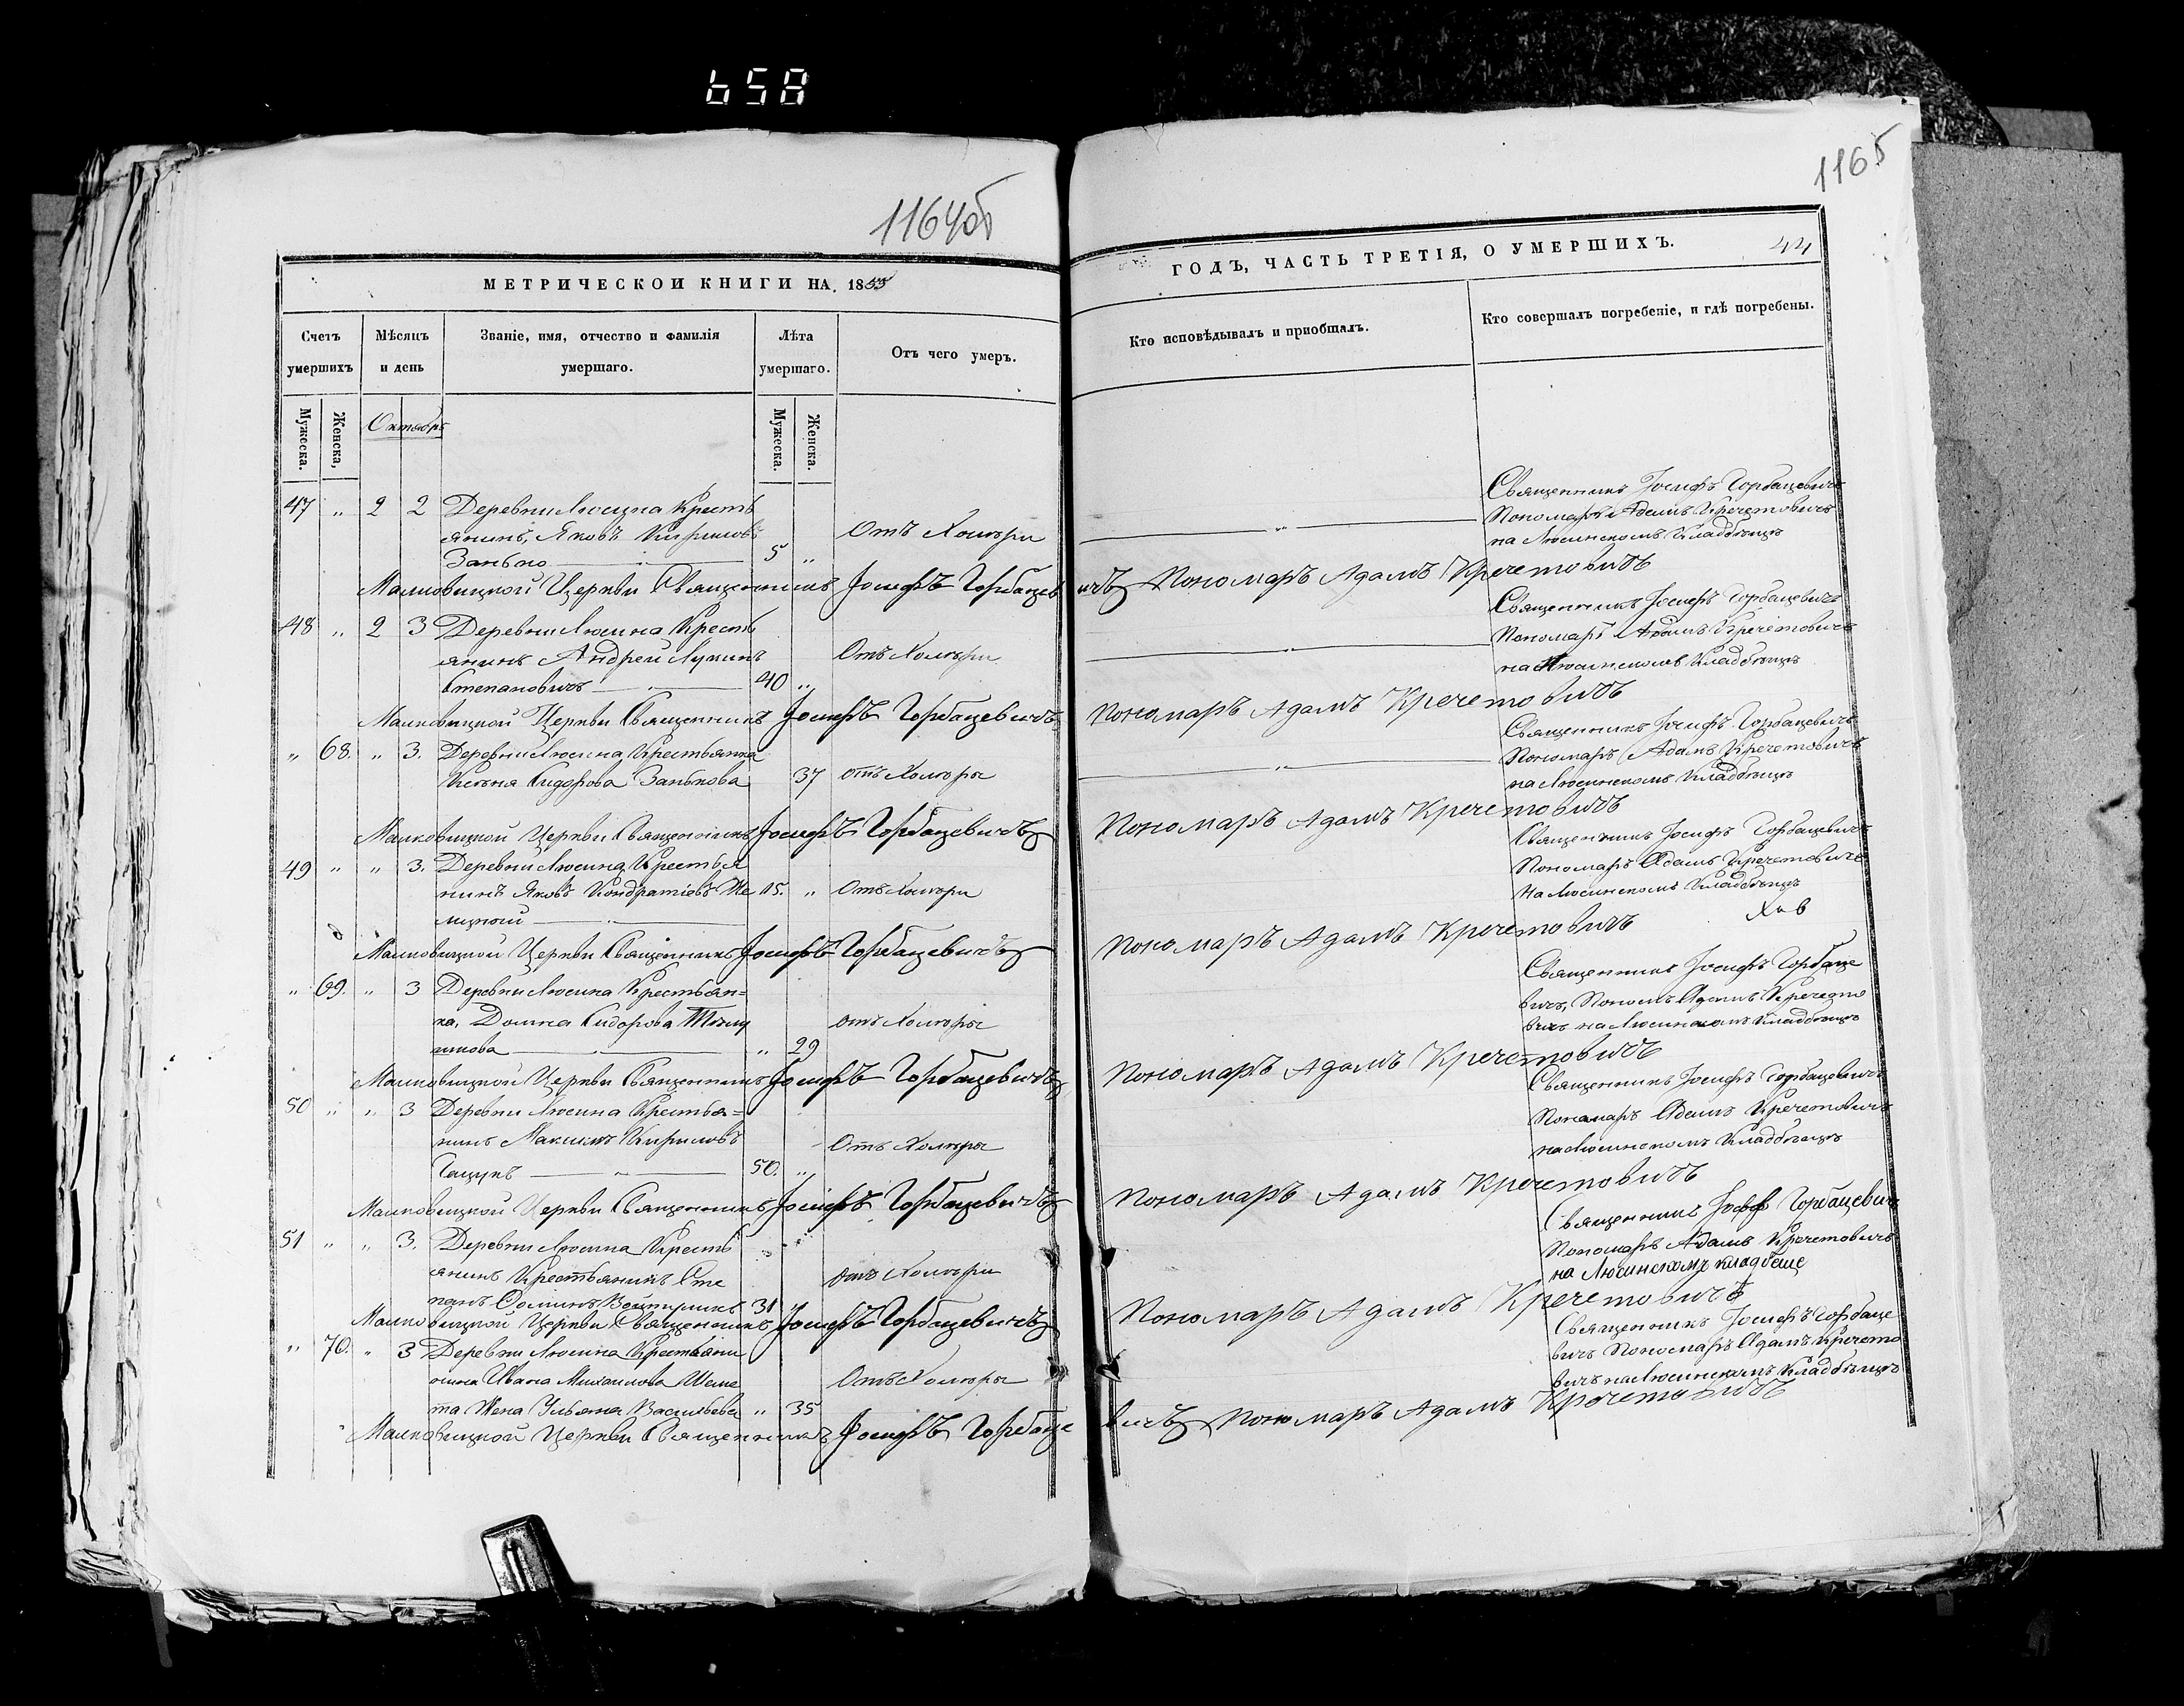 658
1164об
1165
МЕТРИЧЕСКОИ КНИГИ НА 1855
ГОДЪ, ЧАСТЬ ТРЕТІЯ, О УМЕРШИХЪ.
44
Счетъ умершихъ
Мѣсяцъ и день
Званіе, имя, отчество и фамилія умершаго.
Лѣта умершаго.
Отъ чего умеръ.
Кто исповѣдывалъ и пріобщалъ.
Кто совершалъ погребеніе, и гдѣ погребены.
Мужеска.
Женска,
Октябрь
Мужеска.
Женска.
47 „ 2 2 Деревни Люсина Кресть
янинъ, Яковъ Кириловъ Отъ Холеры
Занько 5 „
Священникъ Іосифъ Горбацевичъ
Пономарь Адамъ Кречетовичъ
на Люсинскомъ Кладбѣщѣ
Малковицкой Церкви Священникъ Іосифъ Горбацевичъ Пономаръ Адамъ Кречетовичъ
48 „ 2 3 Деревни Люсина Кресть
янинъ Андрей Лукинъ Отъ Холеры
Степановичъ 40 „
Священникъ Іосифъ Горбацевичъ
Пономаръ Адамъ Кречетовичъ
на Люсинскомъ Кладбѣщѣ
Малковицкой Церкви Священникъ Іосифъ Горбацевичъ Пономаръ Адамъ Кречетовичъ
„ 68. „ 3. Деревни Люсина Крестьянка
Сидорова Занькова 37 отъ Холеры
Священникъ Іосифъ Горбацевичъ
Пономаръ Адамъ Кречетовичъ
на Люсинскомъ Кладбѣщѣ
Малковицкой Церкви Священникъ Іосифъ Горбацевичъ Пономаръ Адамъ Кречетовичъ
49 „ „ 3. Деревни Люсина Крестья
нинъ Яковъ Кондратіевъ 15. „ Отъ Холеры
Священникъ Іосифъ Горбацевичъ
Пономаръ Адамъ Кречетовичъ
На Люсинскомъ Кладбѣщѣ
Малковицкой Церкви Священникъ Іосифъ Горбацевичъ Пономаръ Адамъ Кречетовичъ
„ 69. „ 3 Деревни Люсина Крестьян=
ка, Домна Сидорова отъ Холеры
„ 29
Священникъ Іосифъ Горбаце
вичъ, Адамъ Кречето
вичъ на Люсинскомъ Кладбѣщѣ
Малковицкой Церкви Священникъ Іосифъ Горбацевичъ Пономаръ Адамъ Кречетовичъ
50 „ „ 3 Деревни Люсина Крестья=
нинъ Максимъ Кириловъ Отъ Холеры
50. „
Священникъ Іосифъ Горбацевичъ
Пономаръ Адамъ Кречетовичъ
на Люсинскомъ Кладбѣщѣ
Малковицкой Церкви Священникъ Іосифъ Горбацевичъ Пономаръ Адамъ Кречетовичъ
51 „ „ 3. Деревни Люсина Кресть
янинъ Крестьянинъ Сте отъ Холеры
панъ 31 „
Священникъ Горбацевичъ
Пономаръ Адамъ Кречетовичъ
на Люсинскомъ кладбеще
Малковицкой Церкви Священникъ Іосифъ Горбацевичъ Пономаръ Адамъ Кречетовичъ
„ 70. „ 3 Деревни Люсина Крестьяни
нина Ивана Михаилова Шеме Отъ Холеры
та Жена Ульяна Васильева „ 35
Священникъ Іосифъ Горбаце
вичъ Пономаръ Адамъ Кречето
вичъ на Люсинскомъ Кладбѣщѣ
Малковицкой Церкви Священникъ Іосифъ Горбацевичъ Пономаръ Адамъ Кречетовичъ